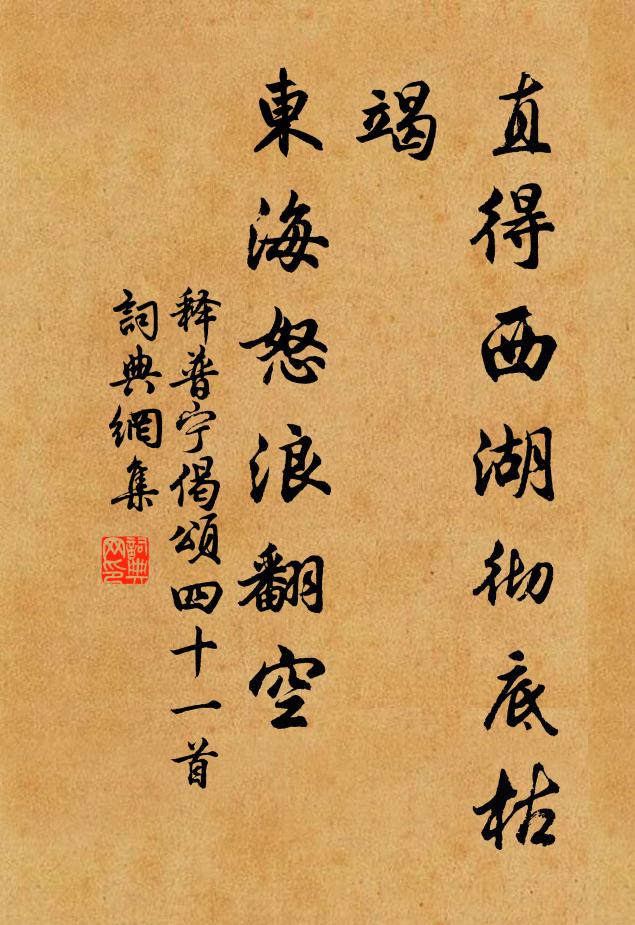 直得西湖彻底枯
竭
東海怒浪翻空
释普宁偈頌四十一首
詞典網集
詞典
网印